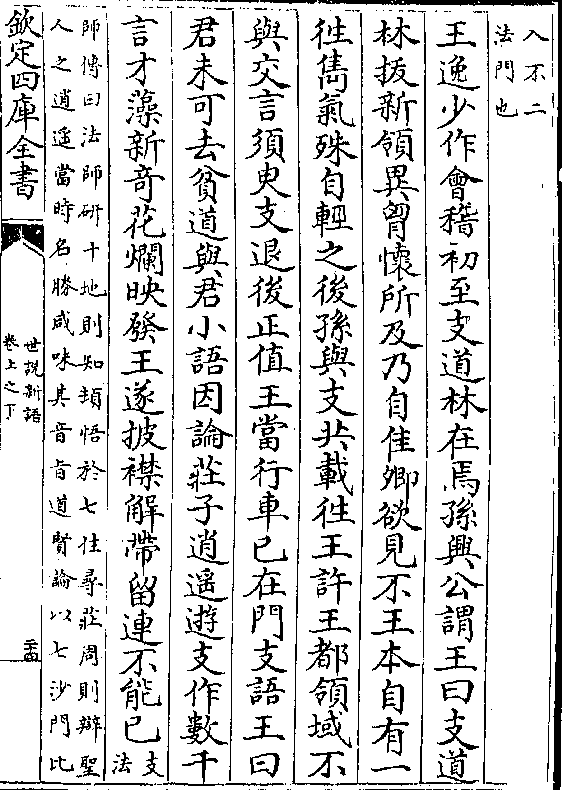 入不二
法門也
王逸少作會稽初至支道林在焉孫興公謂王曰支道
林拔新領異胷懷所及乃自佳卿欲見不王本自有一
徃雋氣殊自輕之後孫與支共載徃王許王都領域不
與交言須臾支退後正值王當行車已在門支語王曰
君未可去貧道與君小語因論莊子逍遥遊支作數千
言才藻新竒花爛映發王遂披襟解帶留連不能已
支
法
師傳曰法師研十地則知頓悟於七住尋莊周則辯聖
人之逍遥當時名勝咸味其音旨道賢論以七沙門比
欽定四庫全書
世説新語
卷上之下
二十四